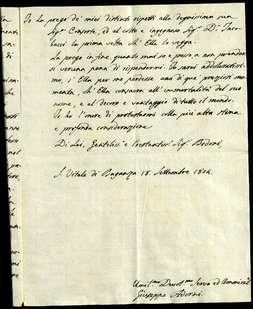 Io la prego de' miei distinti rispetti alla degnissima sua
Sig.ra Consorte, ed al colto e ingegnoso Sig.r D.r
la prima volta ch' Ella lo vegga.
La prego in fine quanto mai so e posso a non prendersi
veruna pena di rispondermi. Io sarei addoloratissi-
mo, s' Ella per me perdesse uno di que' preziosi mo-
menti, ch' Ella consacra all' immortalità del suo
nome, e al decoro e vantaggio di tutto il mondo.
Io ho l' onore di protestarmi colla più alta stima
e profonda considerazione
Di Lei, Gentiliss.o e Prestantiss.o Sig.r Bodoni,
S. Vitale di Baganza 18. Settembre
Umil.mo Devot.mo Servo ed
Giuseppe Adorni